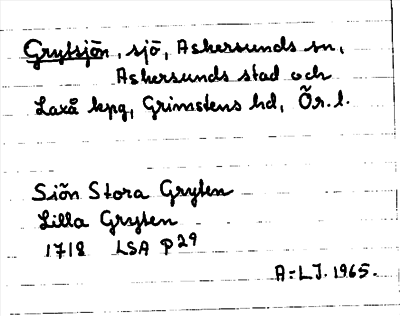 Grytsjön, sjö, Askersunds sn,
Askersunds stad och
Laxå kpg, Grimstens hd, Ör. l.
Siön Stora Gryten
Lilla Gryten
1718 LSA P29
A:LJ. 1965.